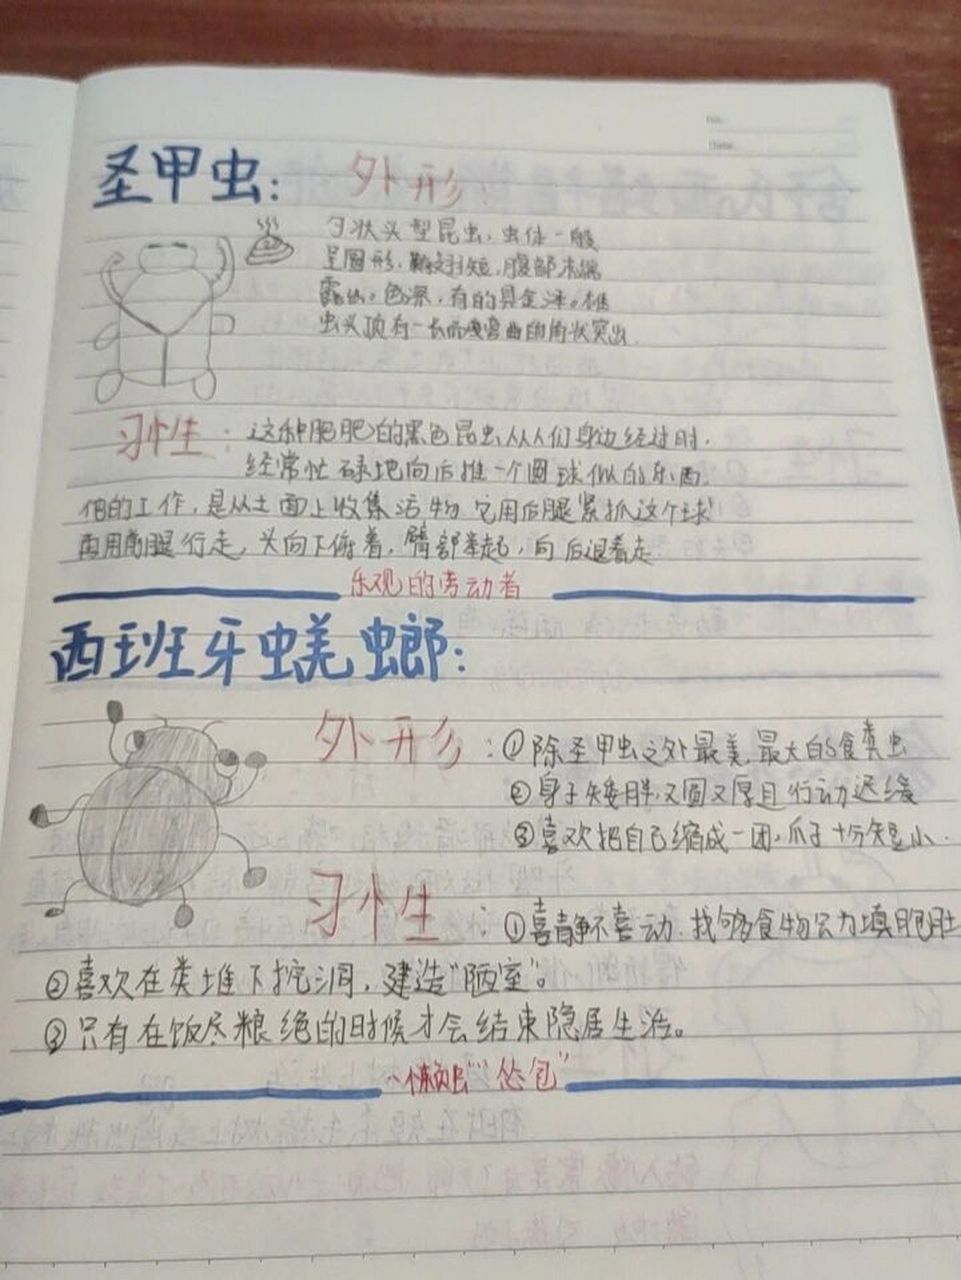 圣甲虫: 外形
勺状头型昆虫，虫体一般
呈圆形，鞘翅短，腹部末端
露出。色深，有的具金泽。雄
虫头顶有一长而弯曲的角状突出
习性: 这种肥肥的黑色昆虫从人们身边经过时，
经常忙碌地向后推一个圆球似的东西
他的工作，是从土面上收集污物 它用后腿紧抓这个球
再用前腿行走，头向下俯着，臀部举起，向后退着走
乐观的劳动者
西班牙蜣螂:
外形: ①除圣甲虫之外最美,最大的食粪虫
②身子矮胖,又圆又厚且行动迟缓
③喜欢把自己缩成一团,爪子十分短小.
习性: ①喜静不喜动.找够食物只为填饱肚
②喜欢在粪堆下挖洞，建造"陋室"。
③只有在饭尽粮绝的时候才会结束隐居生活。
"懒虫""怂包"